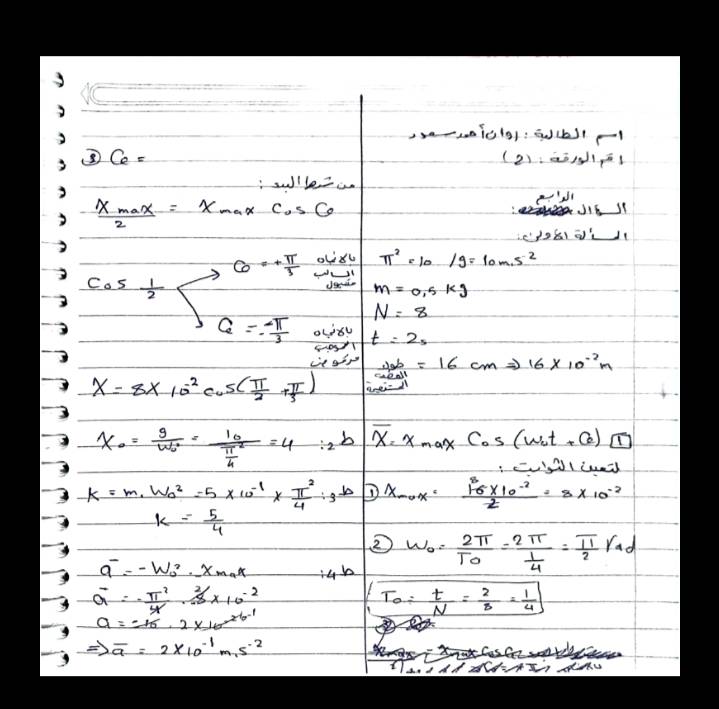 اسم الطالبة: روان أحمد سعود
رقم الورقة: (2)
الرابع
السؤال :
المسألة الأولى:
π² = 10 / g = 10 m.s⁻²
m = 0,5 kg
N = 8
t = 2s
طول القطعة المستقيمة = 16 cm ⇒ 16 × 10⁻² m
X̄ = x max Cos (ω₀t + φ) [1]
لتعيين الثوابت:
① X max = 16 × 10⁻² / 2 = 8 × 10⁻²
② ω₀ = 2π / T₀ = 2π / (1/4) = π/2 rad
T₀ = t/N = 2/8 = 1/4
③ φ =
من شروط البدء:
X max / 2 = X max Cos φ
Cos 1/2
φ = +π/3 بالاتجاه السالب مقبول
φ = -π/3 بالاتجاه الموجب مرفوض
X = 8 × 10⁻² cos(π/2 + π/3)
ط2: X₀ = g/ω₀² = 10 / (π²/4) = 4
ط3: k = m. ω₀² = 5 × 10⁻¹ × π²/4
k = 5/4
ط4: ā = -ω₀² . X max
ā = -π²/4 . 8 × 10⁻²
a = -10 . 2 × 10⁻²
⇒ ā = 2 × 10⁻¹ m.s⁻²